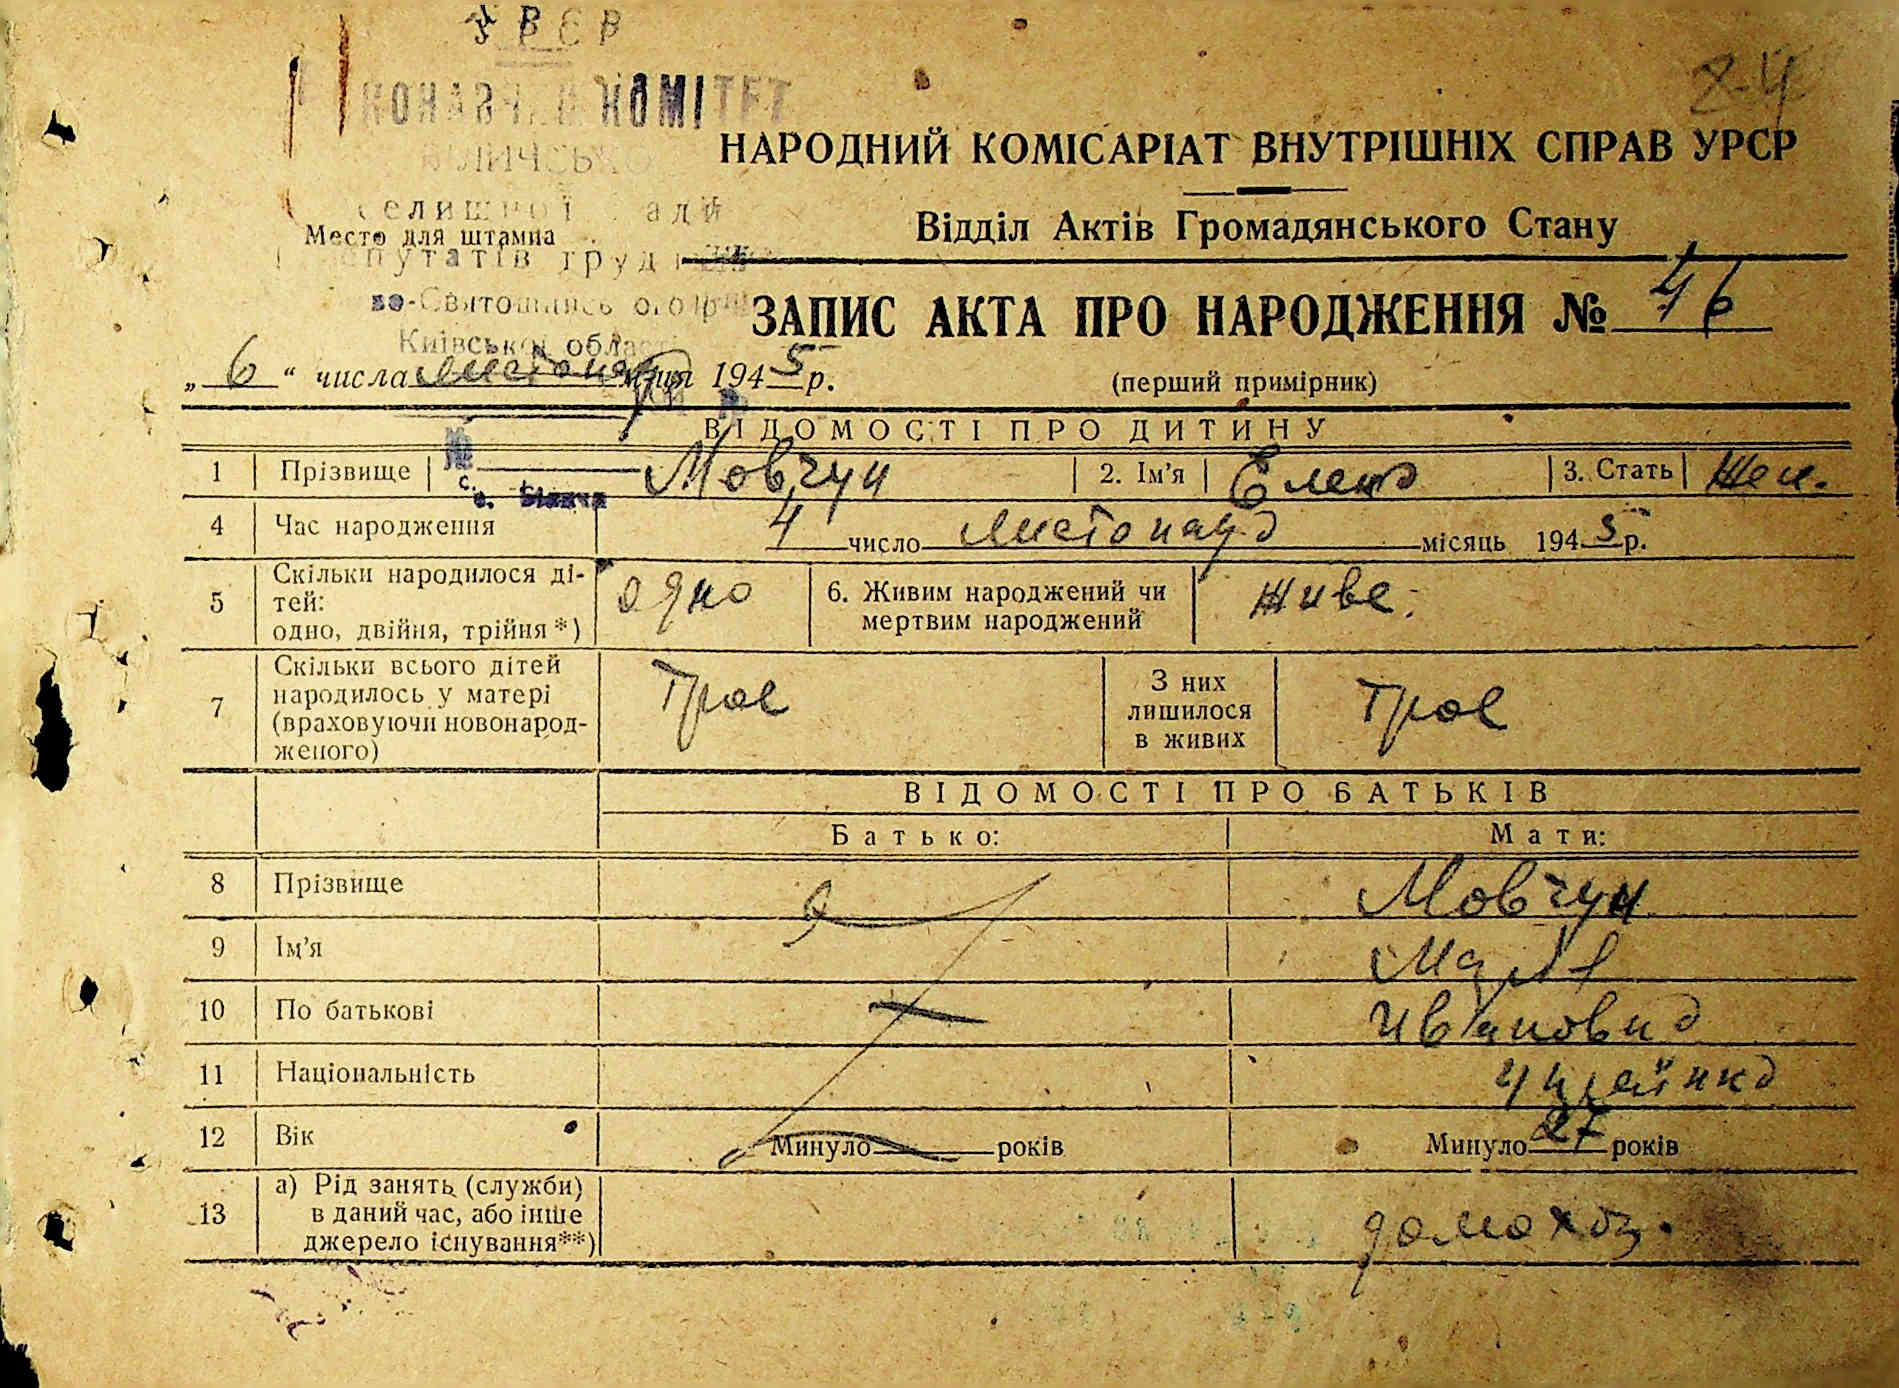 УРСР
КОМІТЕТ
2-4
НАРОДНИЙ КОМІСАРІАТ ВНУТРІШНІХ СПРАВ УРСР
Место для штампа
Відділ Актів Громадянського Стану
Київської
ЗАПИС АКТА ПРО НАРОДЖЕННЯ № 46
„ 6 “ числа листопад м-ця 1945 р.
(перший примірник)
ВІДОМОСТІ ПРО ДИТИНУ
1 Прізвище Мовчун 2. Ім’я Елена 3. Стать Жен.
с. Біличі
4 Час народження 4 число листопад місяць 1945 р.
5 Скільки народилося ді-
тей:
одно, двійня, трійня *) одно 6. Живим народжений чи
мертвим народжений живе.
7 Скільки всього дітей
народилось у матері
(враховуючи новонарод-
женого) Трое З них
лишилося
в живих Трое
ВІДОМОСТІ ПРО БАТЬКІВ
Батько: Мати:
8 Прізвище Мовчун
9 Ім’я
10 По батькові Ивановна
11 Національність
12 Вік Минуло років Минуло 27 років
13 а) Рід занять (служби)
в даний час, або інше
джерело існування**) домохоз.